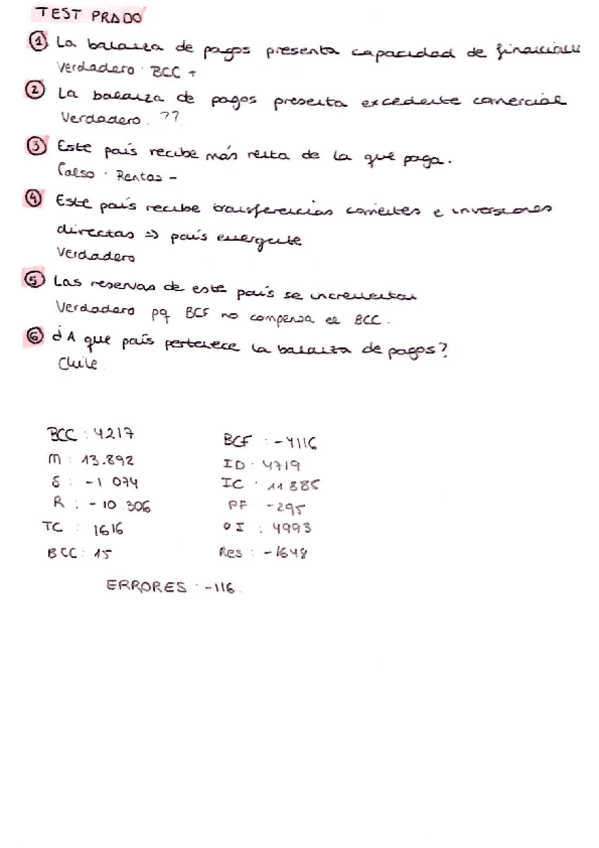 TEST PRADO
① La balanza de pagos presenta capacidad de financiación
Verdadero. BCC +
② La balanza de pagos presenta excedente comercial
Verdadero. ??
③ Este país recibe más renta de la que paga.
Falso. Rentas -
④ Este país recibe transferencias corrientes e inversiones
directas => país emergente
Verdadero
⑤ Las reservas de este país se incrementan
Verdadero pq BCF no compensa el BCC.
⑥ ¿A que país pertenece la balanza de pagos?
Chile
BCC: 4217
M: 13.892
S: -1 074
R: -10.306
TC: 1616
BCC: 15
BCF: -4116
ID: 4719
IC: 11 885
PF -295
OI: 4993
Res: -1648
ERRORES: -116.